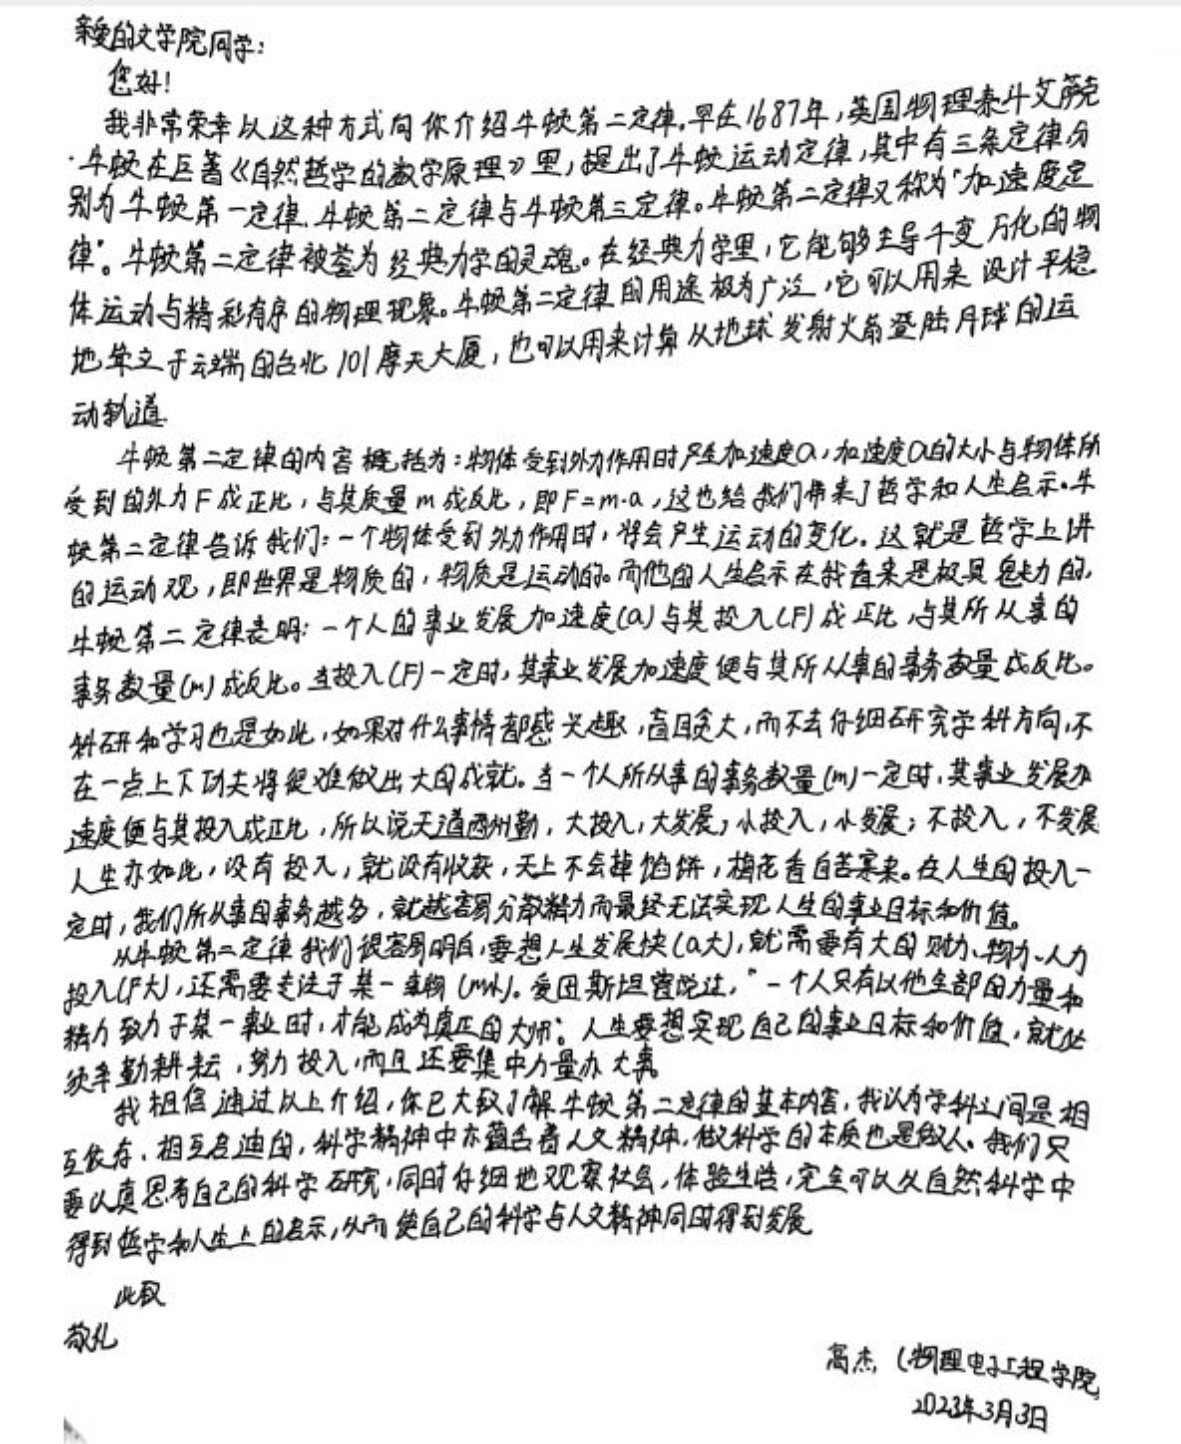 亲爱的文学院同学:
您好!
我非常荣幸以这种方式向你介绍牛顿第二定律.早在1687年,英国物理泰斗艾萨克
·牛顿在巨著《自然哲学的数学原理》里,提出了牛顿运动定律,其中有三条定律分
别为牛顿第一定律、牛顿第二定律与牛顿第三定律。牛顿第二定律又称为"加速度定
律"。牛顿第二定律被誉为经典力学的灵魂。在经典力学里,它能够主导千变万化的物
体运动与精彩有序的物理现象。牛顿第二定律的用途极为广泛,它可以用来设计平稳
地耸立于云端的台北101摩天大厦,也可以用来计算从地球发射火箭登陆月球的运
动轨道.
牛顿第二定律的内容概括为:物体受到外力作用时产生加速度a,加速度a的大小与物体所
受到的外力F成正比,与其质量m成反比,即F=m·a,这也给我们带来了哲学和人生启示.牛
顿第二定律告诉我们:一个物体受到外力作用时,将会产生运动的变化.这就是哲学上讲
的运动观,即世界是物质的,物质是运动的。而他的人生启示在我看来是极具魅力的,
牛顿第二定律表明:一个人的事业发展加速度(a)与其投入(F)成正比,与其所从事的
事务数量(m)成反比。当投入(F)一定时,其事业发展加速度便与其所从事的事务数量成反比。
科研和学习也是如此,如果对什么事情都感兴趣,盲目贪大,而不去仔细研究学科方向,不
在一点上下功夫将很难做出大的成就。当一个人所从事的事务数量(m)一定时,其事业发展加
速度便与其投入成正比,所以说天道酬勤,大投入,大发展;小投入,小发展;不投入,不发展
人生亦如此,没有投入,就没有收获,天上不会掉馅饼,梅花香自苦寒来。在人生的投入一
定时,我们所从事的事务越多,就越容易分散精力而最终无法实现人生的事业目标和价值。
从牛顿第二定律我们很容易明白,要想人生发展快(a大),就需要有大的财力、物力、人力
投入(F大),还需要专注于某一事物(m小)。爱因斯坦曾说过,"一个人只有以他全部的力量和
精力致力于某一事业时,才能成为真正的大师"。人生要想实现自己的事业目标和价值,就必
须辛勤耕耘,努力投入,而且还要集中力量办大事。
我相信通过以上介绍,你已大致了解牛顿第二定律的基本内容,我认为学科之间是相
互依存、相互启迪的,科学精神中亦蕴含着人文精神,做科学的本质也是做人。我们只
要认真思考自己的科学研究,同时仔细地观察社会,体验生活,完全可以从自然科学中
得到哲学和人生上的启示,从而使自己的科学与人文精神同时得到发展
此致
敬礼
高杰 (物理电子工程学院)
2023年3月3日